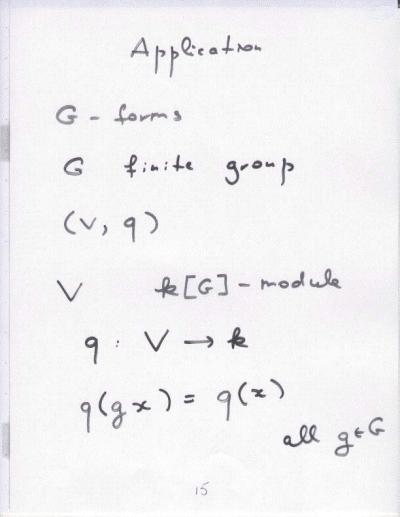 Application
G - forms
G finite group
(V, q)
V k[G] - module
q : V → k
q(gx) = q(x)
all g ∈ G
15